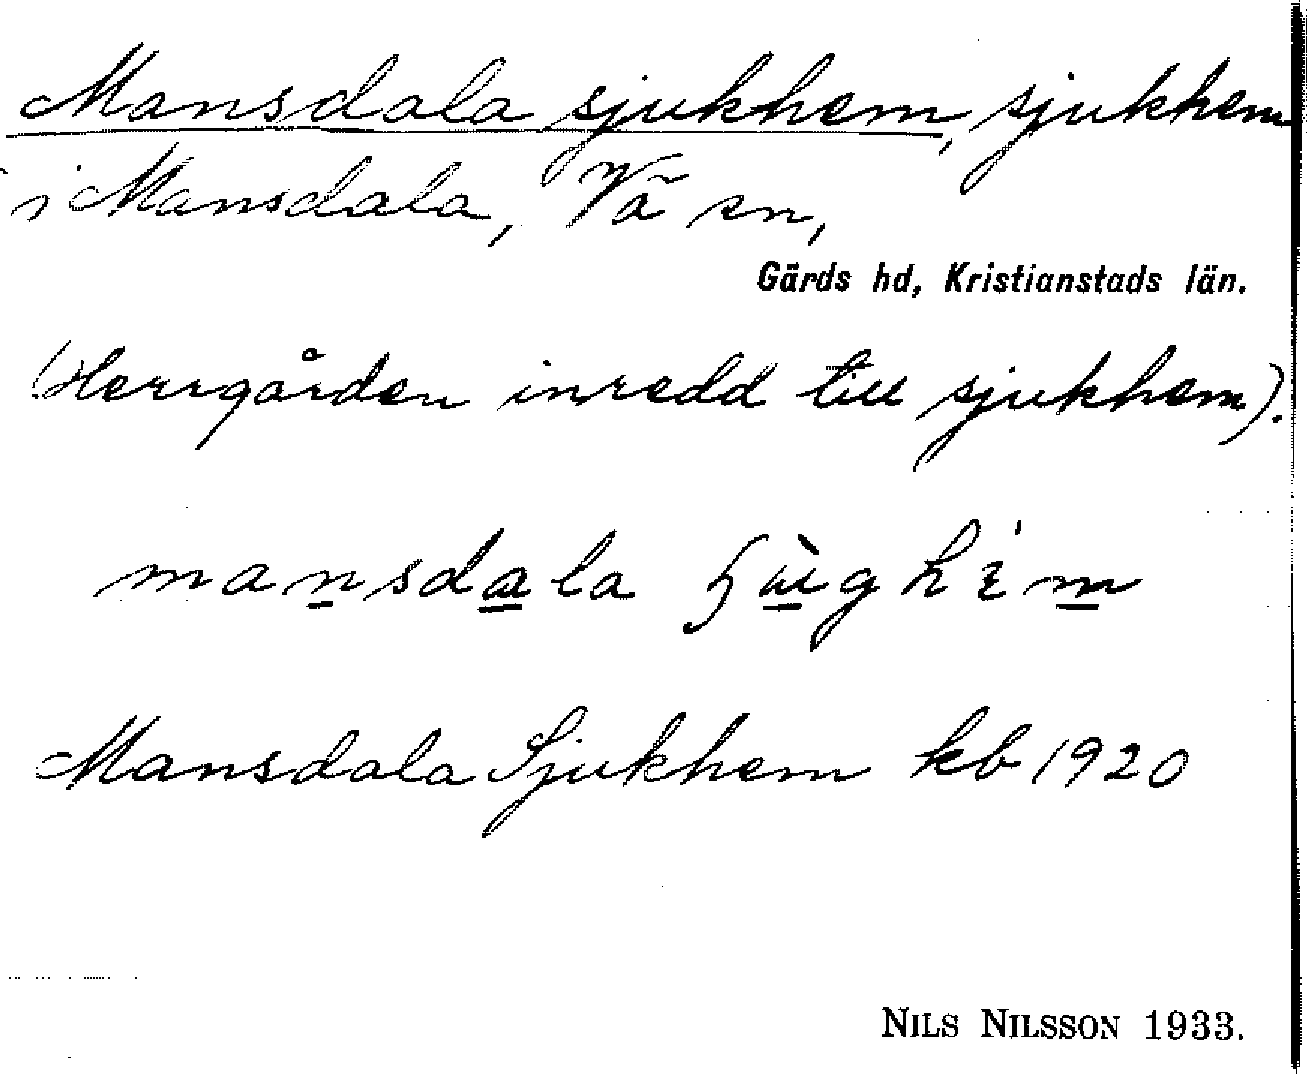 Mansdala sjukhem, sjukhem
i Mansdala, Vä sn,
Gärds hd, Kristianstads län.
(Herrgården inredd till sjukhem).
mansdala
Mansdala Sjukhem kb 1920
NILS NILSSON 1933.